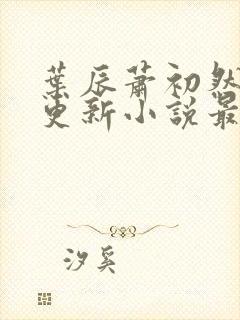 葉辰蕭初然
更新小說最
汐奚